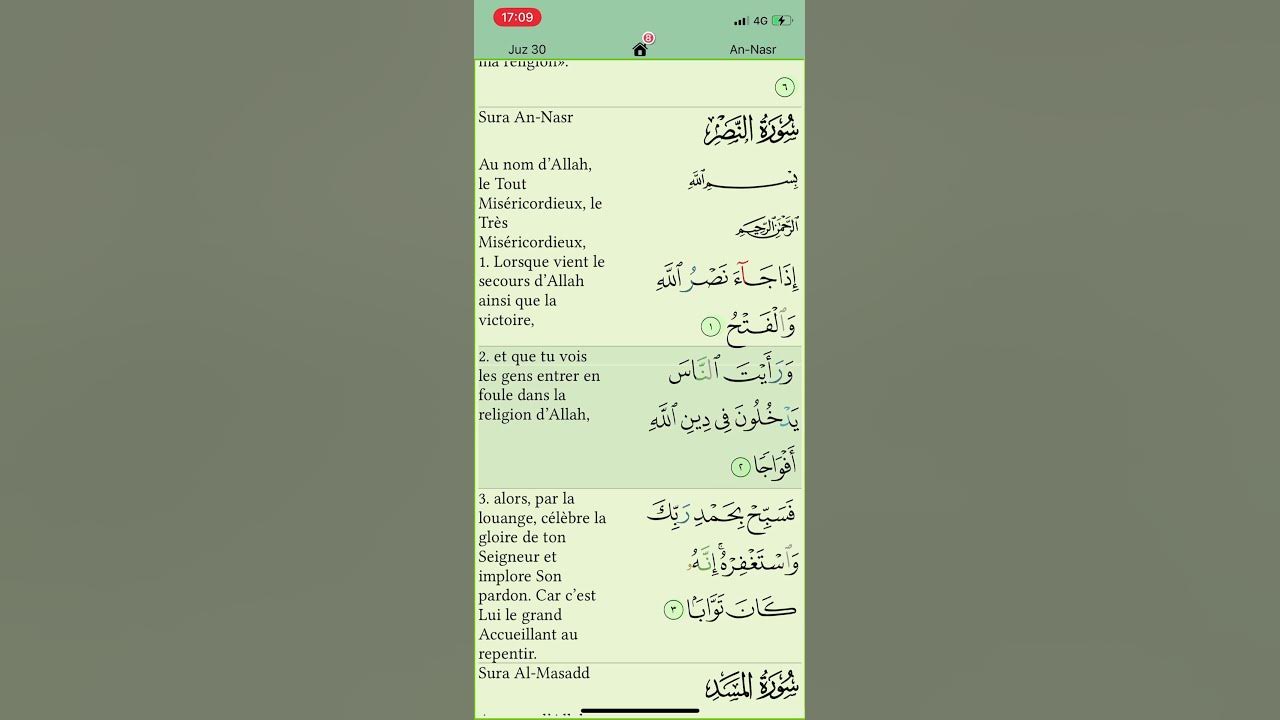 17:09
4G
Juz 30
8
An-Nasr
ma religion».
٦
Sura An-Nasr
سُورَةُ النَّصْرِ
Au nom d’Allah,
le Tout
Miséricordieux, le
Très
Miséricordieux,
بِسْمِ ٱللَّهِ
ٱلرَّحْمَٰنِ ٱلرَّحِيمِ
1. Lorsque vient le
secours d’Allah
ainsi que la
victoire,
إِذَا جَآءَ نَصْرُ ٱللَّهِ
وَٱلْفَتْحُ ١
2. et que tu vois
les gens entrer en
foule dans la
religion d’Allah,
وَرَأَيْتَ ٱلنَّاسَ
يَدْخُلُونَ فِى دِينِ ٱللَّهِ
أَفْوَاجًا ٢
3. alors, par la
louange, célèbre la
gloire de ton
Seigneur et
implore Son
pardon. Car c’est
Lui le grand
Accueillant au
repentir.
فَسَبِّحْ بِحَمْدِ رَبِّكَ
وَٱسْتَغْفِرْهُ ۚ إِنَّهُۥ
كَانَ تَوَّابًۢا ٣
Sura Al-Masadd
سُورَةُ المَسَدِ